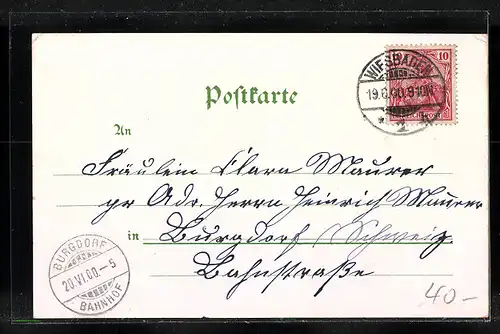 10
WIESBADEN
19.6.00.9-10N.
* 2 k
Postkarte
An
Fräulein Clara Maurer
pr Adr. Herrn Heinrich Maurer
in Burgdorf (Schweiz
Bahnstraße
BURGDORF
20.VI.00-5
BAHNHOF
40-